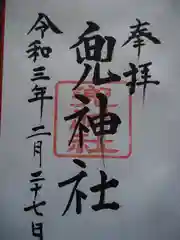 奉拝
兜神社
令和三年二月二十七日